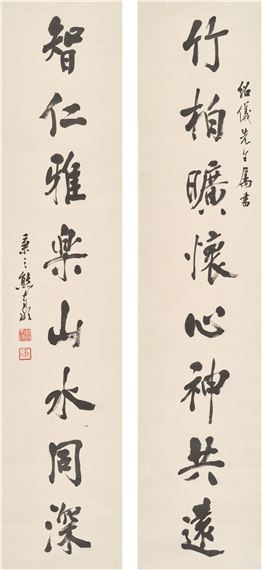 紹儀先生屬書
竹柏曠懷心神共遠
智仁雅樂山水同深
秉三熊希齡